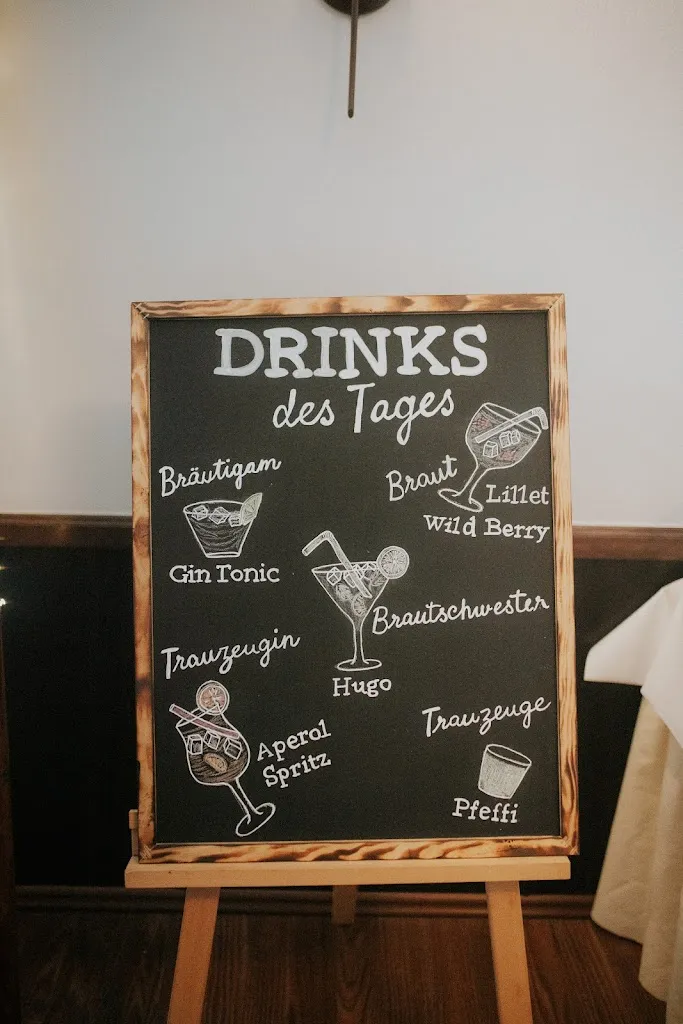 DRINKS
des Tages
Bräutigam
Gin Tonic
Braut
Lillet
Wild Berry
Brautschwester
Hugo
Trauzeugin
Aperol
Spritz
Trauzeuge
Pfeffi